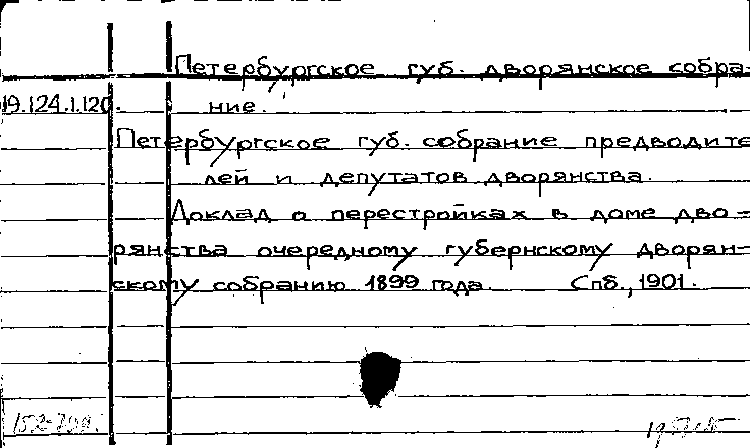 Петербургское губ. дворянское собра-
19.124.1.120. ние.
Петербургское губ. собрание предводите
лей и депутатов дворянства.
Доклад о перестройках в доме дво=
рянства очередному губернскому дворян=
скому собранию 1899 года Спб., 1901.